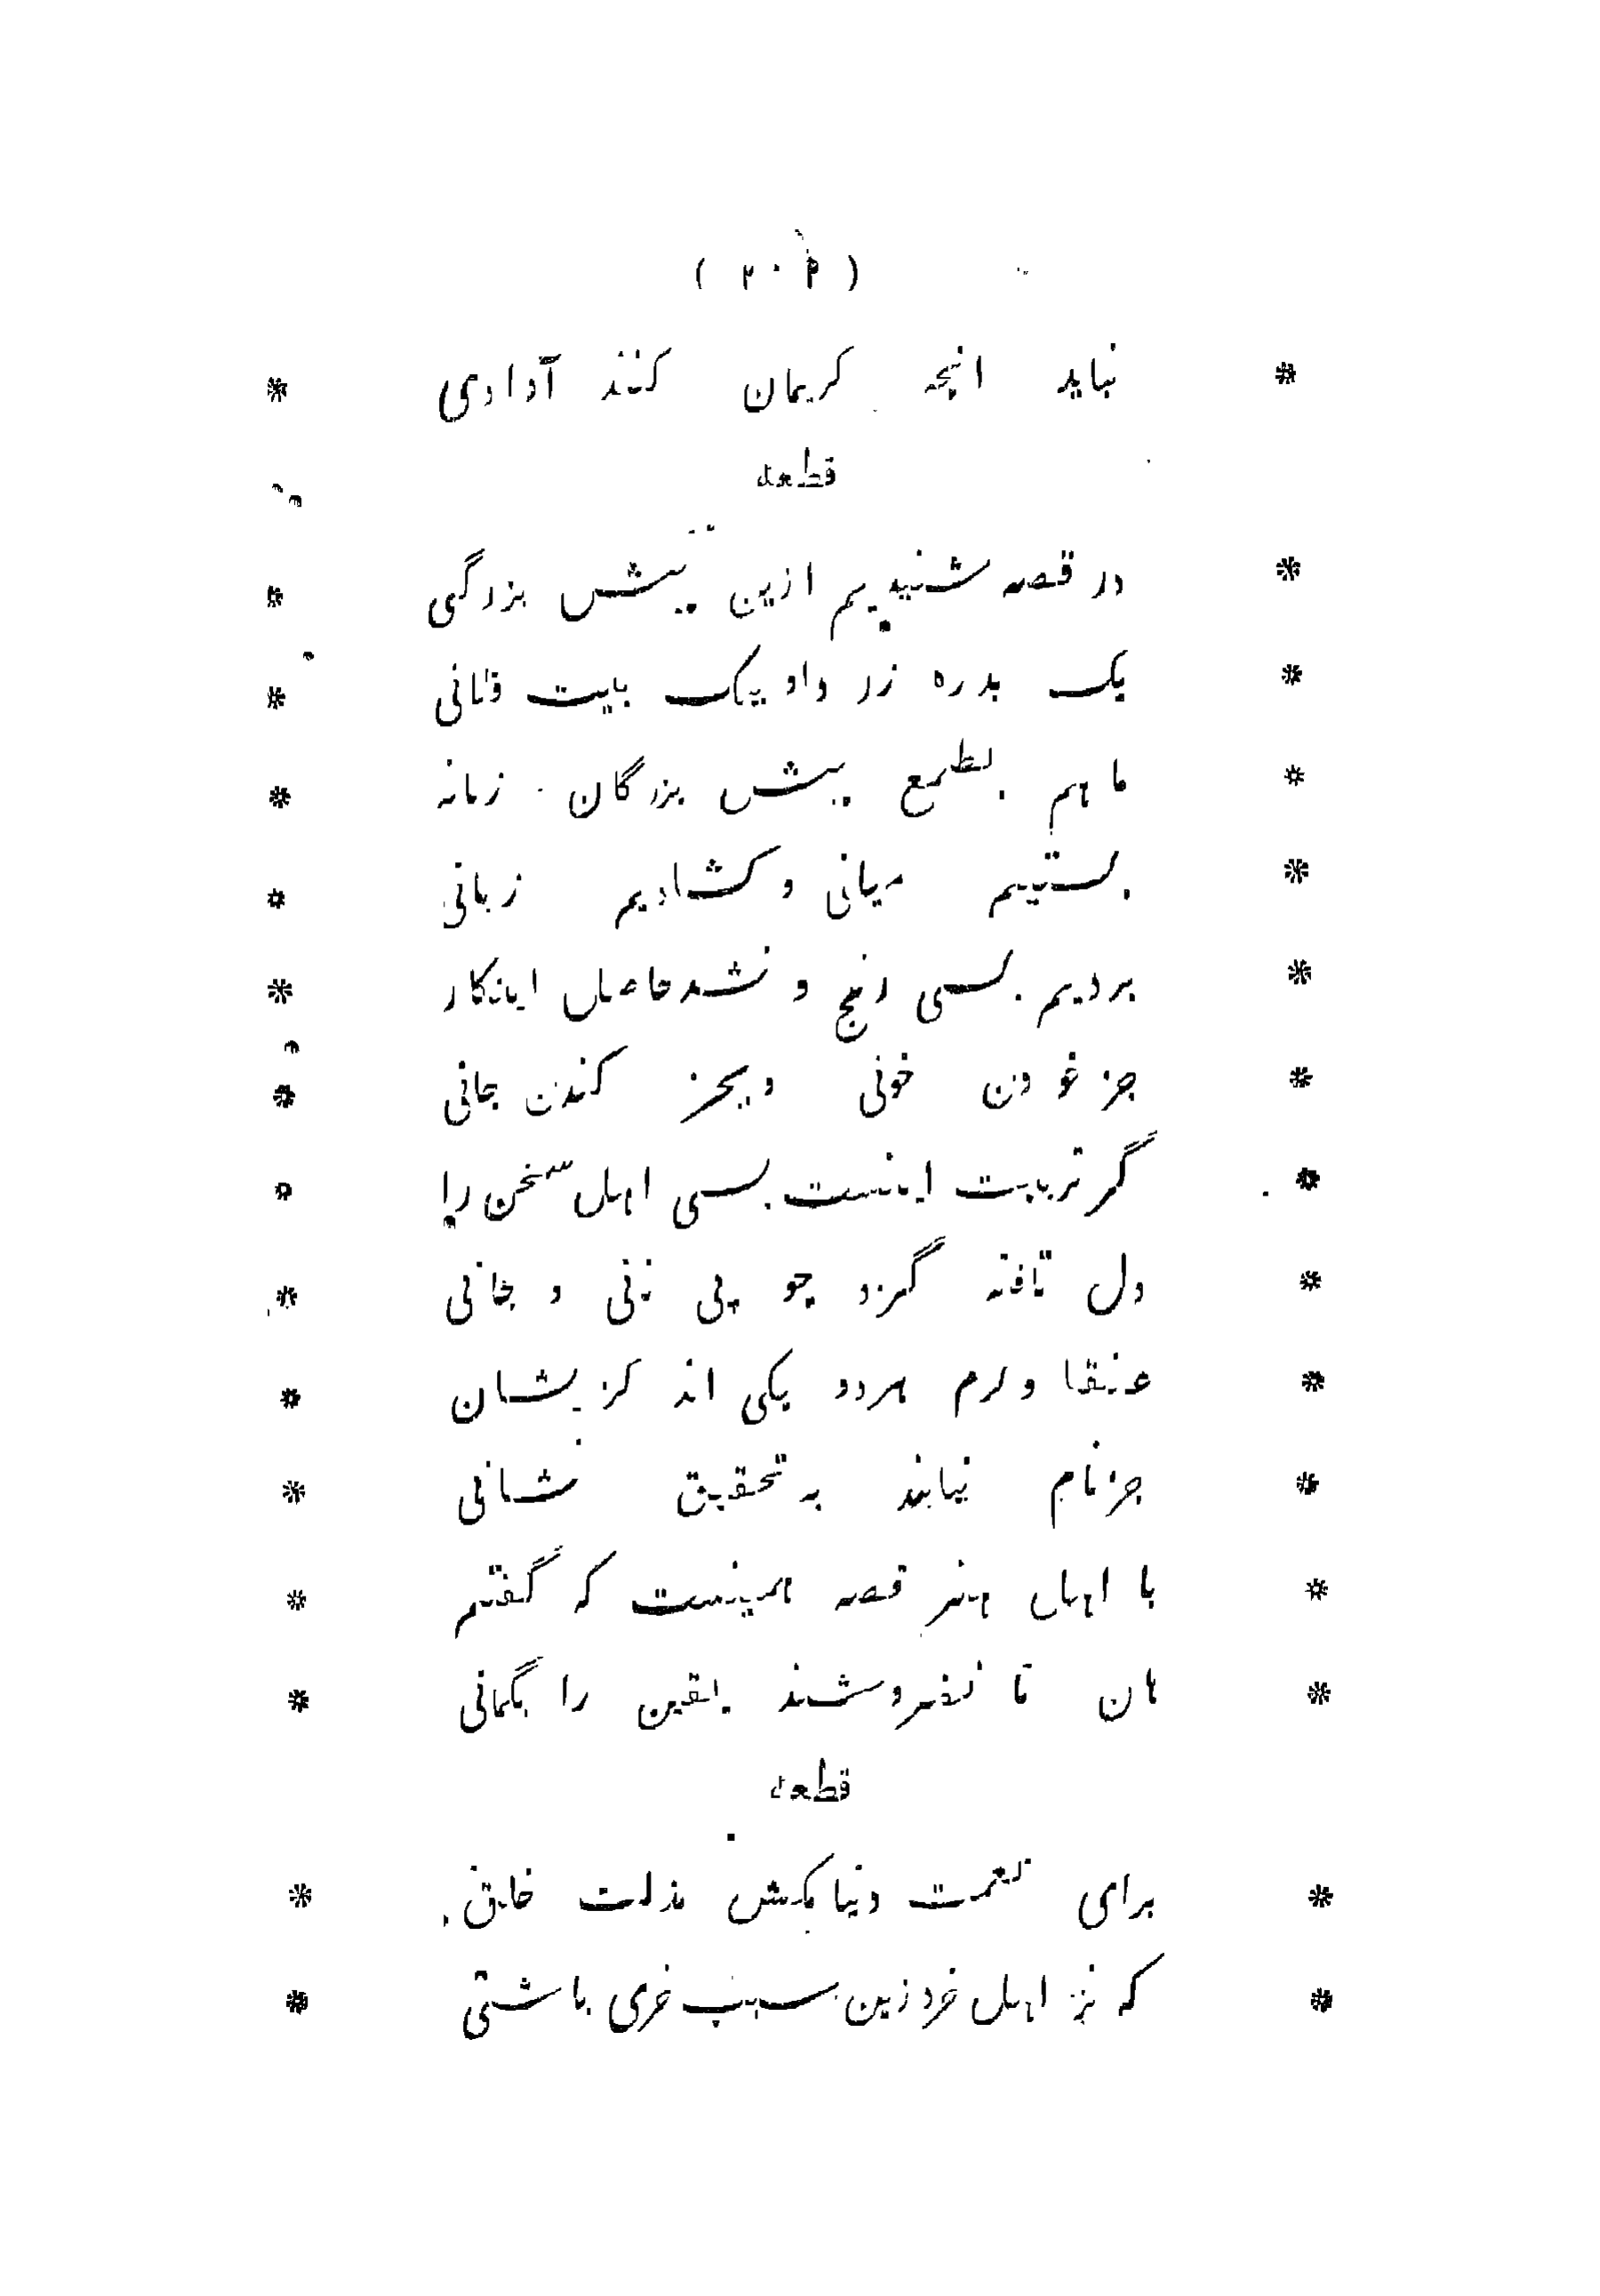 ( ۲۰۴ )
* نیاید انچه کریمان کنند آدادی *
قطعه
* در قصه شنیدیم ازین پیش بزرگی *
* یک بدره زر داد بیک بیت فلانی *
* ما هم بطمع پیش بزرگان زمانه *
* بستیم میانی و کشادیم زبانی *
* بردیم بسی رنج و نشد حاصل اینکار *
* جز خوردن خونی و بجز کندن جانی *
* گر تربیت اینست بسی اهل سخن را *
* دل تافته گردد چو پی نانی و جانی *
* عنقا و کرم هردو یکی اند کزیشان *
* جز نام نیابند به تحقیق نشانی *
* با اهل هنر قصه همینست که گفتم *
* هان تا نفروشند یقین را بگمانی *
قطعه
* برای نعمت دنیا مکش مذلت خلق *
* که نزد اهل خرد زین سبب خری باشی *